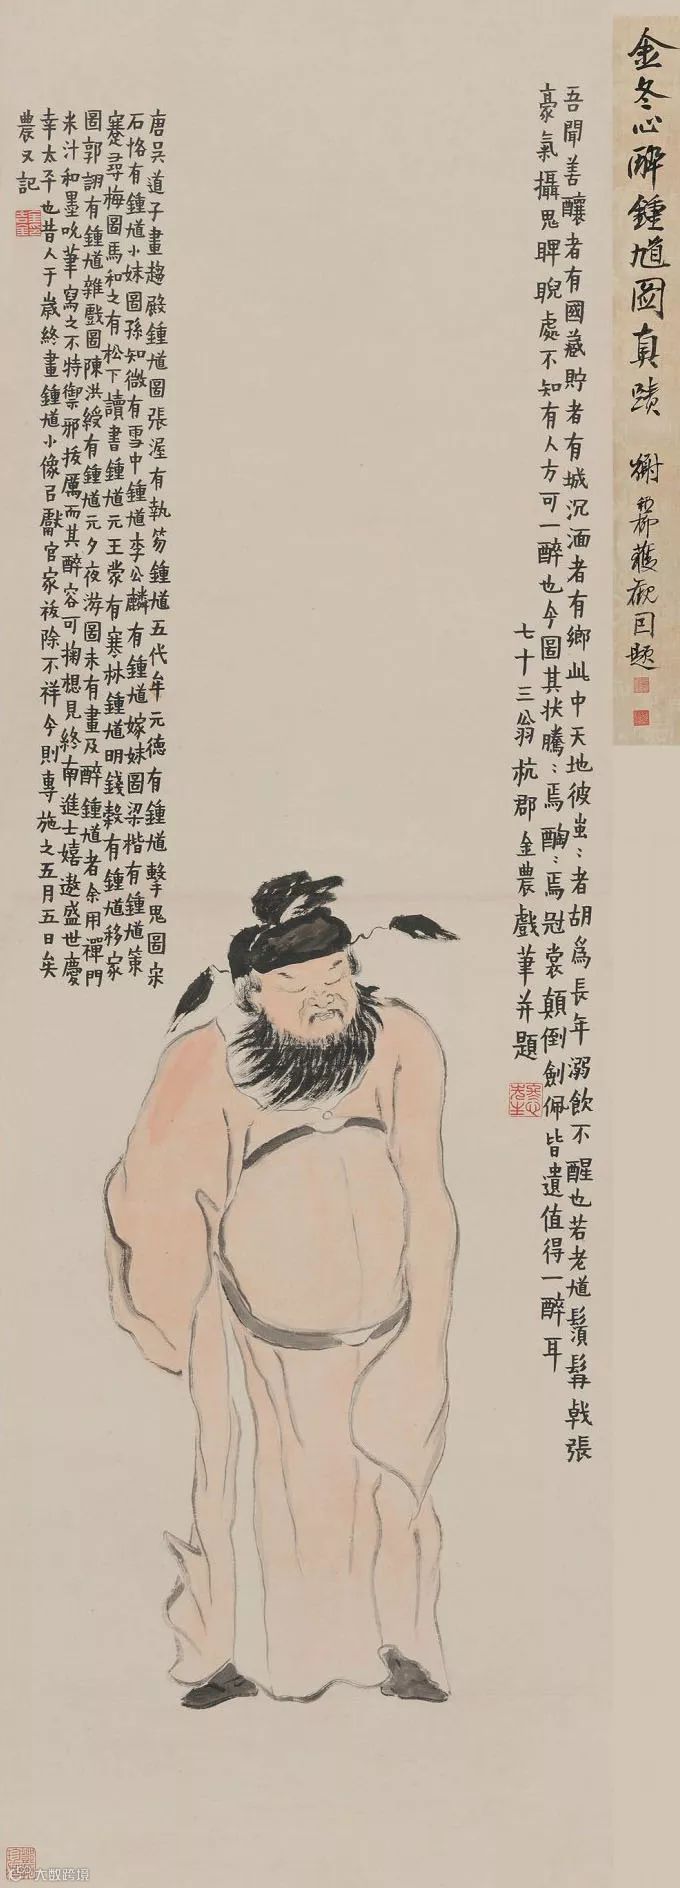 金冬心醉鍾馗圖真蹟 謝稚柳獲觀因題
吾聞善釀者有國藏貯者有城沉湎者有鄉此中天地彼蚩〻者胡爲長年溺飲不醒也若老馗鬚髯戟張
豪氣攝鬼睥睨處不知有人方可一醉也今圖其状騰〻焉醄〻焉冠裳顛倒劍佩皆遺值得一醉耳
七十三翁杭郡金農戲筆并題
冬心先生
唐吳道子畫趨殿鍾馗圖張渥有執笏鍾馗五代牟元德有鍾馗擊鬼圖宋
石恪有鍾馗小妹圖孫知微有雪中鍾馗李公麟有鍾馗嫁妹圖梁楷有鍾馗策
蹇尋梅圖馬和之有松下讀書鍾馗元王蒙有寒林鍾馗明錢穀有鍾馗移家
圖郭詡有鍾馗雜戲圖陳洪綬有鍾馗元夕夜游圖未有畫及醉鍾馗者余用禪門
米汁和墨吮筆寫之不特禦邪拔厲而其醉容可掬想見終南進士嬉遨盛世慶
幸太平也昔人于歲終畫鍾馗小像㠯獻官家祓除不祥今則專施之五月五日矣
農又記
大数跨境